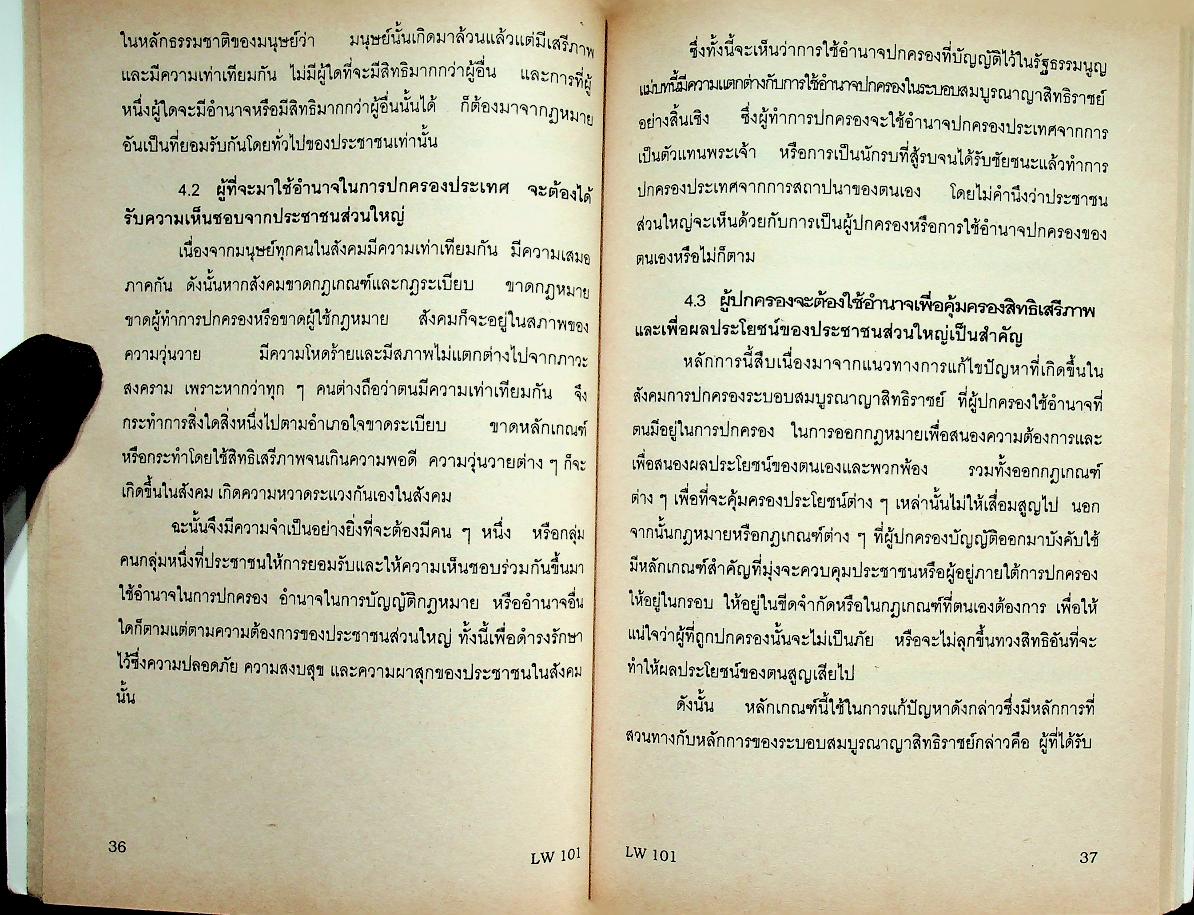 ในหลักธรรมชาติของมนุษย์ว่า มนุษย์นั้นเกิดมาล้วนแล้วแต่มีเสรีภาพ
และมีความเท่าเทียมกัน ไม่มีผู้ใดที่จะมีสิทธิมากกว่าผู้อื่น และการที่ผู้
หนึ่งผู้ใดจะมีอำนาจหรือมีสิทธิมากกว่าผู้อื่นนั้นได้ ก็ต้องมาจากกฎหมาย
อันเป็นที่ยอมรับกันโดยทั่วไปของประชาชนเท่านั้น
4.2 ผู้ที่จะมาใช้อำนาจในการปกครองประเทศ จะต้องได้
รับความเห็นชอบจากประชาชนส่วนใหญ่
เนื่องจากมนุษย์ทุกคนในสังคมมีความเท่าเทียมกัน มีความเสมอ
ภาคกัน ดังนั้นหากสังคมขาดกฎเกณฑ์และกฎระเบียบ ขาดกฎหมาย
ขาดผู้ทำการปกครองหรือขาดผู้ใช้กฎหมาย สังคมก็จะอยู่ในสภาพของ
ความวุ่นวาย มีความโหดร้ายและมีสภาพไม่แตกต่างไปจากภาวะ
สงคราม เพราะหากว่าทุก ๆ คนต่างถือว่าตนมีความเท่าเทียมกัน จึง
กระทำการสิ่งใดสิ่งหนึ่งไปตามอำเภอใจขาดระเบียบ ขาดหลักเกณฑ์
หรือกระทำโดยใช้สิทธิเสรีภาพจนเกินความพอดี ความวุ่นวายต่าง ๆ ก็จะ
เกิดขึ้นในสังคม เกิดความหวาดระแวงกันเองในสังคม
ฉะนั้นจึงมีความจำเป็นอย่างยิ่งที่จะต้องมีคน ๆ หนึ่ง หรือกลุ่ม
คนกลุ่มหนึ่งที่ประชาชนให้การยอมรับและให้ความเห็นชอบร่วมกันขึ้นมา
ใช้อำนาจในการปกครอง อำนาจในการบัญญัติกฎหมาย หรืออำนาจอื่น
ใดก็ตามแต่ตามความต้องการของประชาชนส่วนใหญ่ ทั้งนี้เพื่อดำรงรักษา
ไว้ซึ่งความปลอดภัย ความสงบสุข และความผาสุกของประชาชนในสังคม
นั้น
36
LW 101
ซึ่งทั้งนี้จะเห็นว่าการใช้อำนาจปกครองที่บัญญัติไว้ในรัฐธรรมนูญ
แม่บทนี้มีความแตกต่างกับการใช้อำนาจปกครองในระบอบสมบูรณาญาสิทธิราชย์
อย่างสิ้นเชิง ซึ่งผู้ทำการปกครองจะใช้อำนาจปกครองประเทศจากการ
เป็นตัวแทนพระเจ้า หรือการเป็นนักรบที่สู้รบจนได้รับชัยชนะแล้วทำการ
ปกครองประเทศจากการสถาปนาของตนเอง โดยไม่คำนึงว่าประชาชน
ส่วนใหญ่จะเห็นด้วยกับการเป็นผู้ปกครองหรือการใช้อำนาจปกครองของ
ตนเองหรือไม่ก็ตาม
4.3 ผู้ปกครองจะต้องใช้อำนาจเพื่อคุ้มครองสิทธิเสรีภาพ
และเพื่อผลประโยชน์ของประชาชนส่วนใหญ่เป็นสำคัญ
หลักการนี้สืบเนื่องมาจากแนวทางการแก้ไขปัญหาที่เกิดขึ้นใน
สังคมการปกครองระบอบสมบูรณาญาสิทธิราชย์ ที่ผู้ปกครองใช้อำนาจที่
ตนมีอยู่ในการปกครอง ในการออกกฎหมายเพื่อสนองความต้องการและ
เพื่อสนองผลประโยชน์ของตนเองและพวกพ้อง รวมทั้งออกกฎเกณฑ์
ต่าง ๆ เพื่อที่จะคุ้มครองประโยชน์ต่าง ๆ เหล่านั้นไม่ให้เสื่อมสูญไป นอก
จากนั้นกฎหมายหรือกฎเกณฑ์ต่าง ๆ ที่ผู้ปกครองบัญญัติออกมาบังคับใช้
มีหลักเกณฑ์สำคัญที่มุ่งจะควบคุมประชาชนหรือผู้อยู่ภายใต้การปกครอง
ให้อยู่ในกรอบ ให้อยู่ในขีดจำกัดหรือในกฎเกณฑ์ที่ตนเองต้องการ เพื่อให้
แน่ใจว่าผู้ที่ถูกปกครองนั้นจะไม่เป็นภัย หรือจะไม่ลุกขึ้นทวงสิทธิอันที่จะ
ทำให้ผลประโยชน์ของตนสูญเสียไป
ดังนั้น หลักเกณฑ์นี้ใช้ในการแก้ปัญหาดังกล่าวซึ่งมีหลักการที่
สวนทางกับหลักการของระบอบสมบูรณาญาสิทธิราชย์กล่าวคือ ผู้ที่ได้รับ
LW 101
37